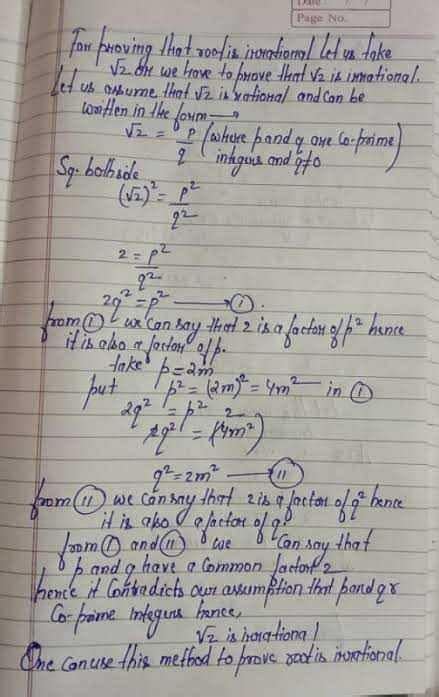 Date / /
Page No.
For proving that root is irrational let us take
√2 or we have to prove that √2 is irrational.
Let us assume that √2 is rational and can be
written in the form →
√2 = p/q (where p and q are Co-prime
integers and q≠0
Sq. both side
(√2)² = p²/q²
2 = p²/q²
2q² = p² → (I).
from (I) we can say that 2 is a factor of p² hence
it is also a factor of p.
take p = 2m
put p² = (2m)² = 4m² in (I)
2q² = p²
2q² = (4m²)
q² = 2m² → (II)
from (II) we can say that 2 is a factor of q² hence
it is also a factor of q.
from (I) and (II) we can say that
p and q have a Common factor 2
hence it Contradicts our assumption that p and q r
Co-prime Integers hence,
√2 is irrational
One can use this method to prove root is irrational.